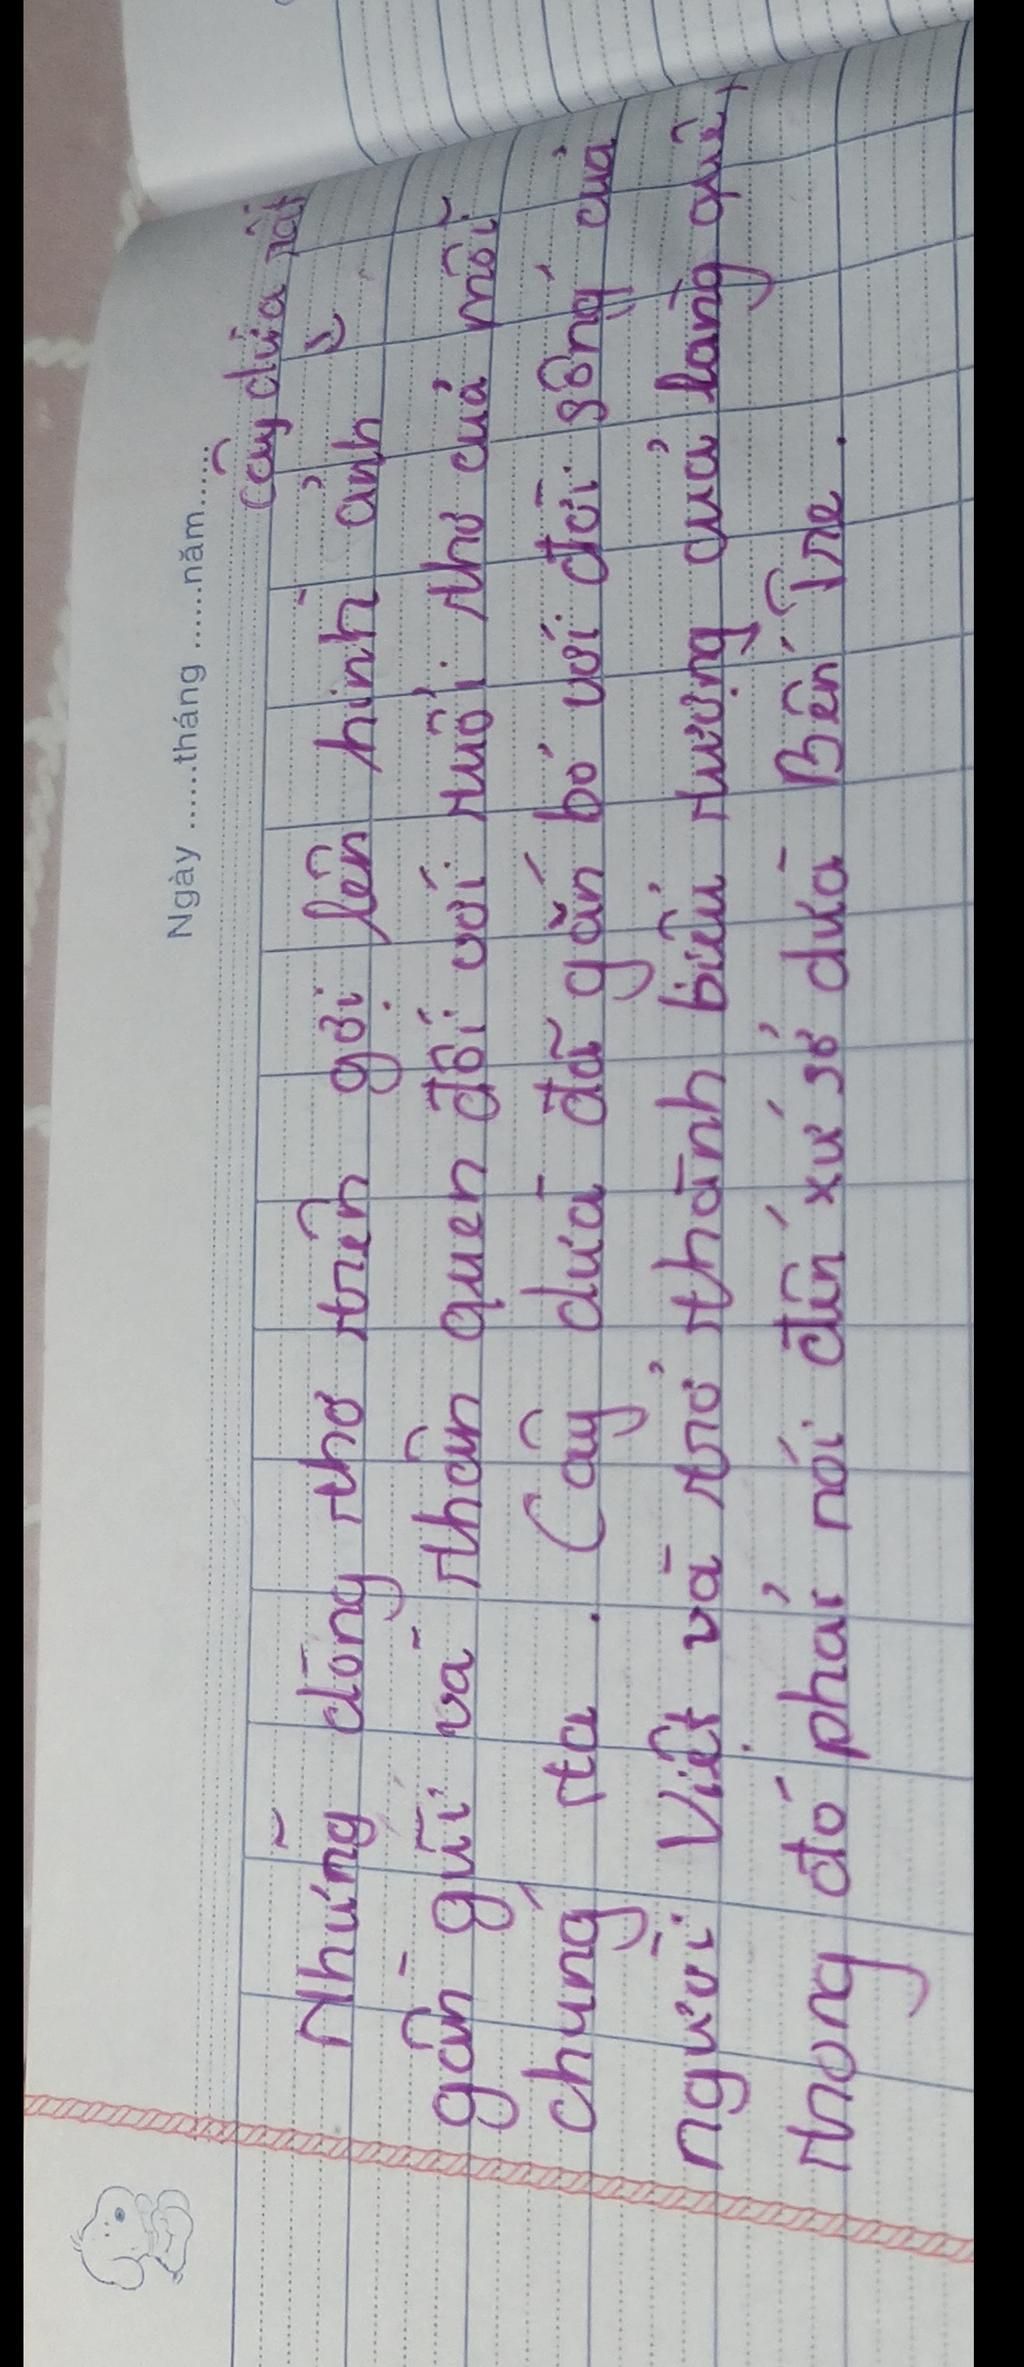 Ngày ......tháng ......năm......
cây dừa rất
Những dòng thơ trên gợi lên hình ảnh
gần gũi và thân quen đối với tuổi thơ của mỗi
chúng ta. Cây dừa đã gắn bó với đời sống của
người Việt và trở thành biểu tượng của làng quê,
trong đó phải nói đến xứ sở dừa Bến Tre.